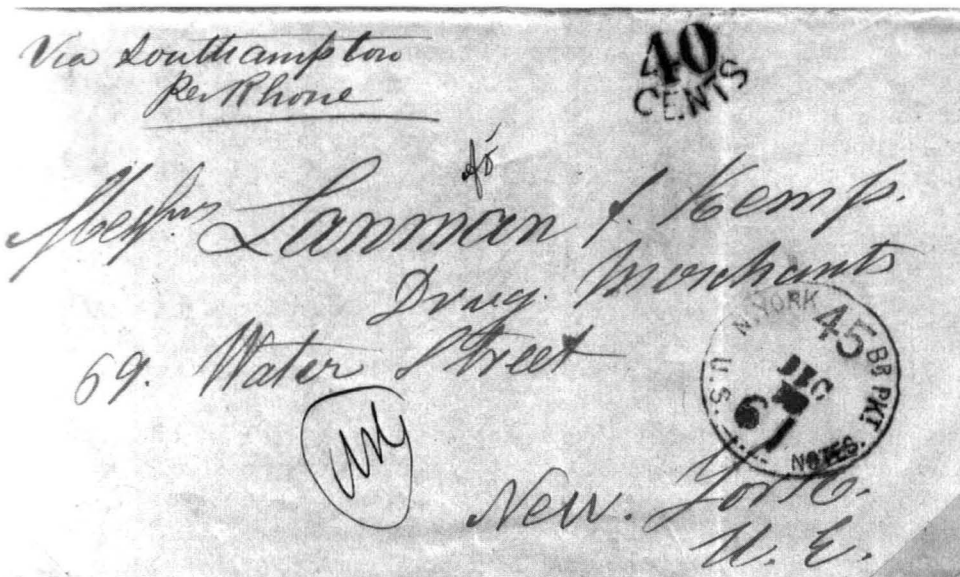 Via Southampton
Per Rhone
40
CENTS
Messrs Lanman & Kemp.
Drug. Merchants
69. Water Street
N. YORK 45 BR PKT.
DEC
U.S. NOTES.
New. York.
U. E.